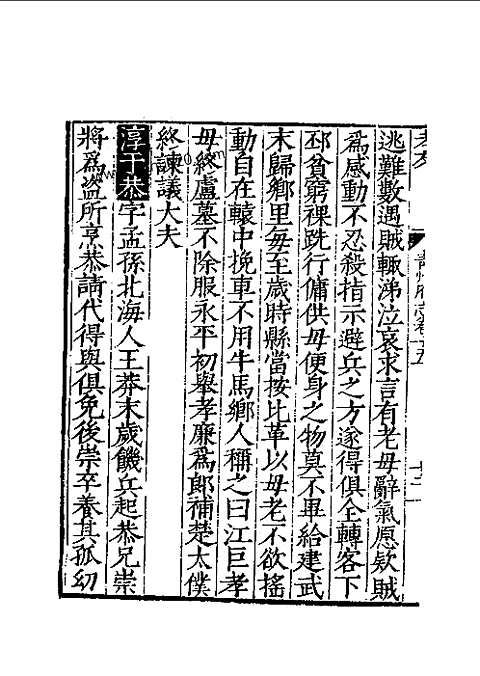 逃難數遇賊輒涕泣哀求言有老母辭氣愿欵賊
爲感動不忍殺指示避兵之方遂得俱全轉客下
邳貧窮裸跣行傭供母便身之物莫不畢給建武
末歸鄉里每至歲時縣當按比革以母老不欲搖
動自在轅中挽車不用牛馬鄉人稱之曰江巨孝
母終廬墓不除服永平初舉孝廉爲郎補楚太僕
終諫議大夫
淳于恭字孟孫北海人王莽末歲饑兵起恭兄崇
將爲盜所烹恭請代得與俱免後崇卒養其孤幼